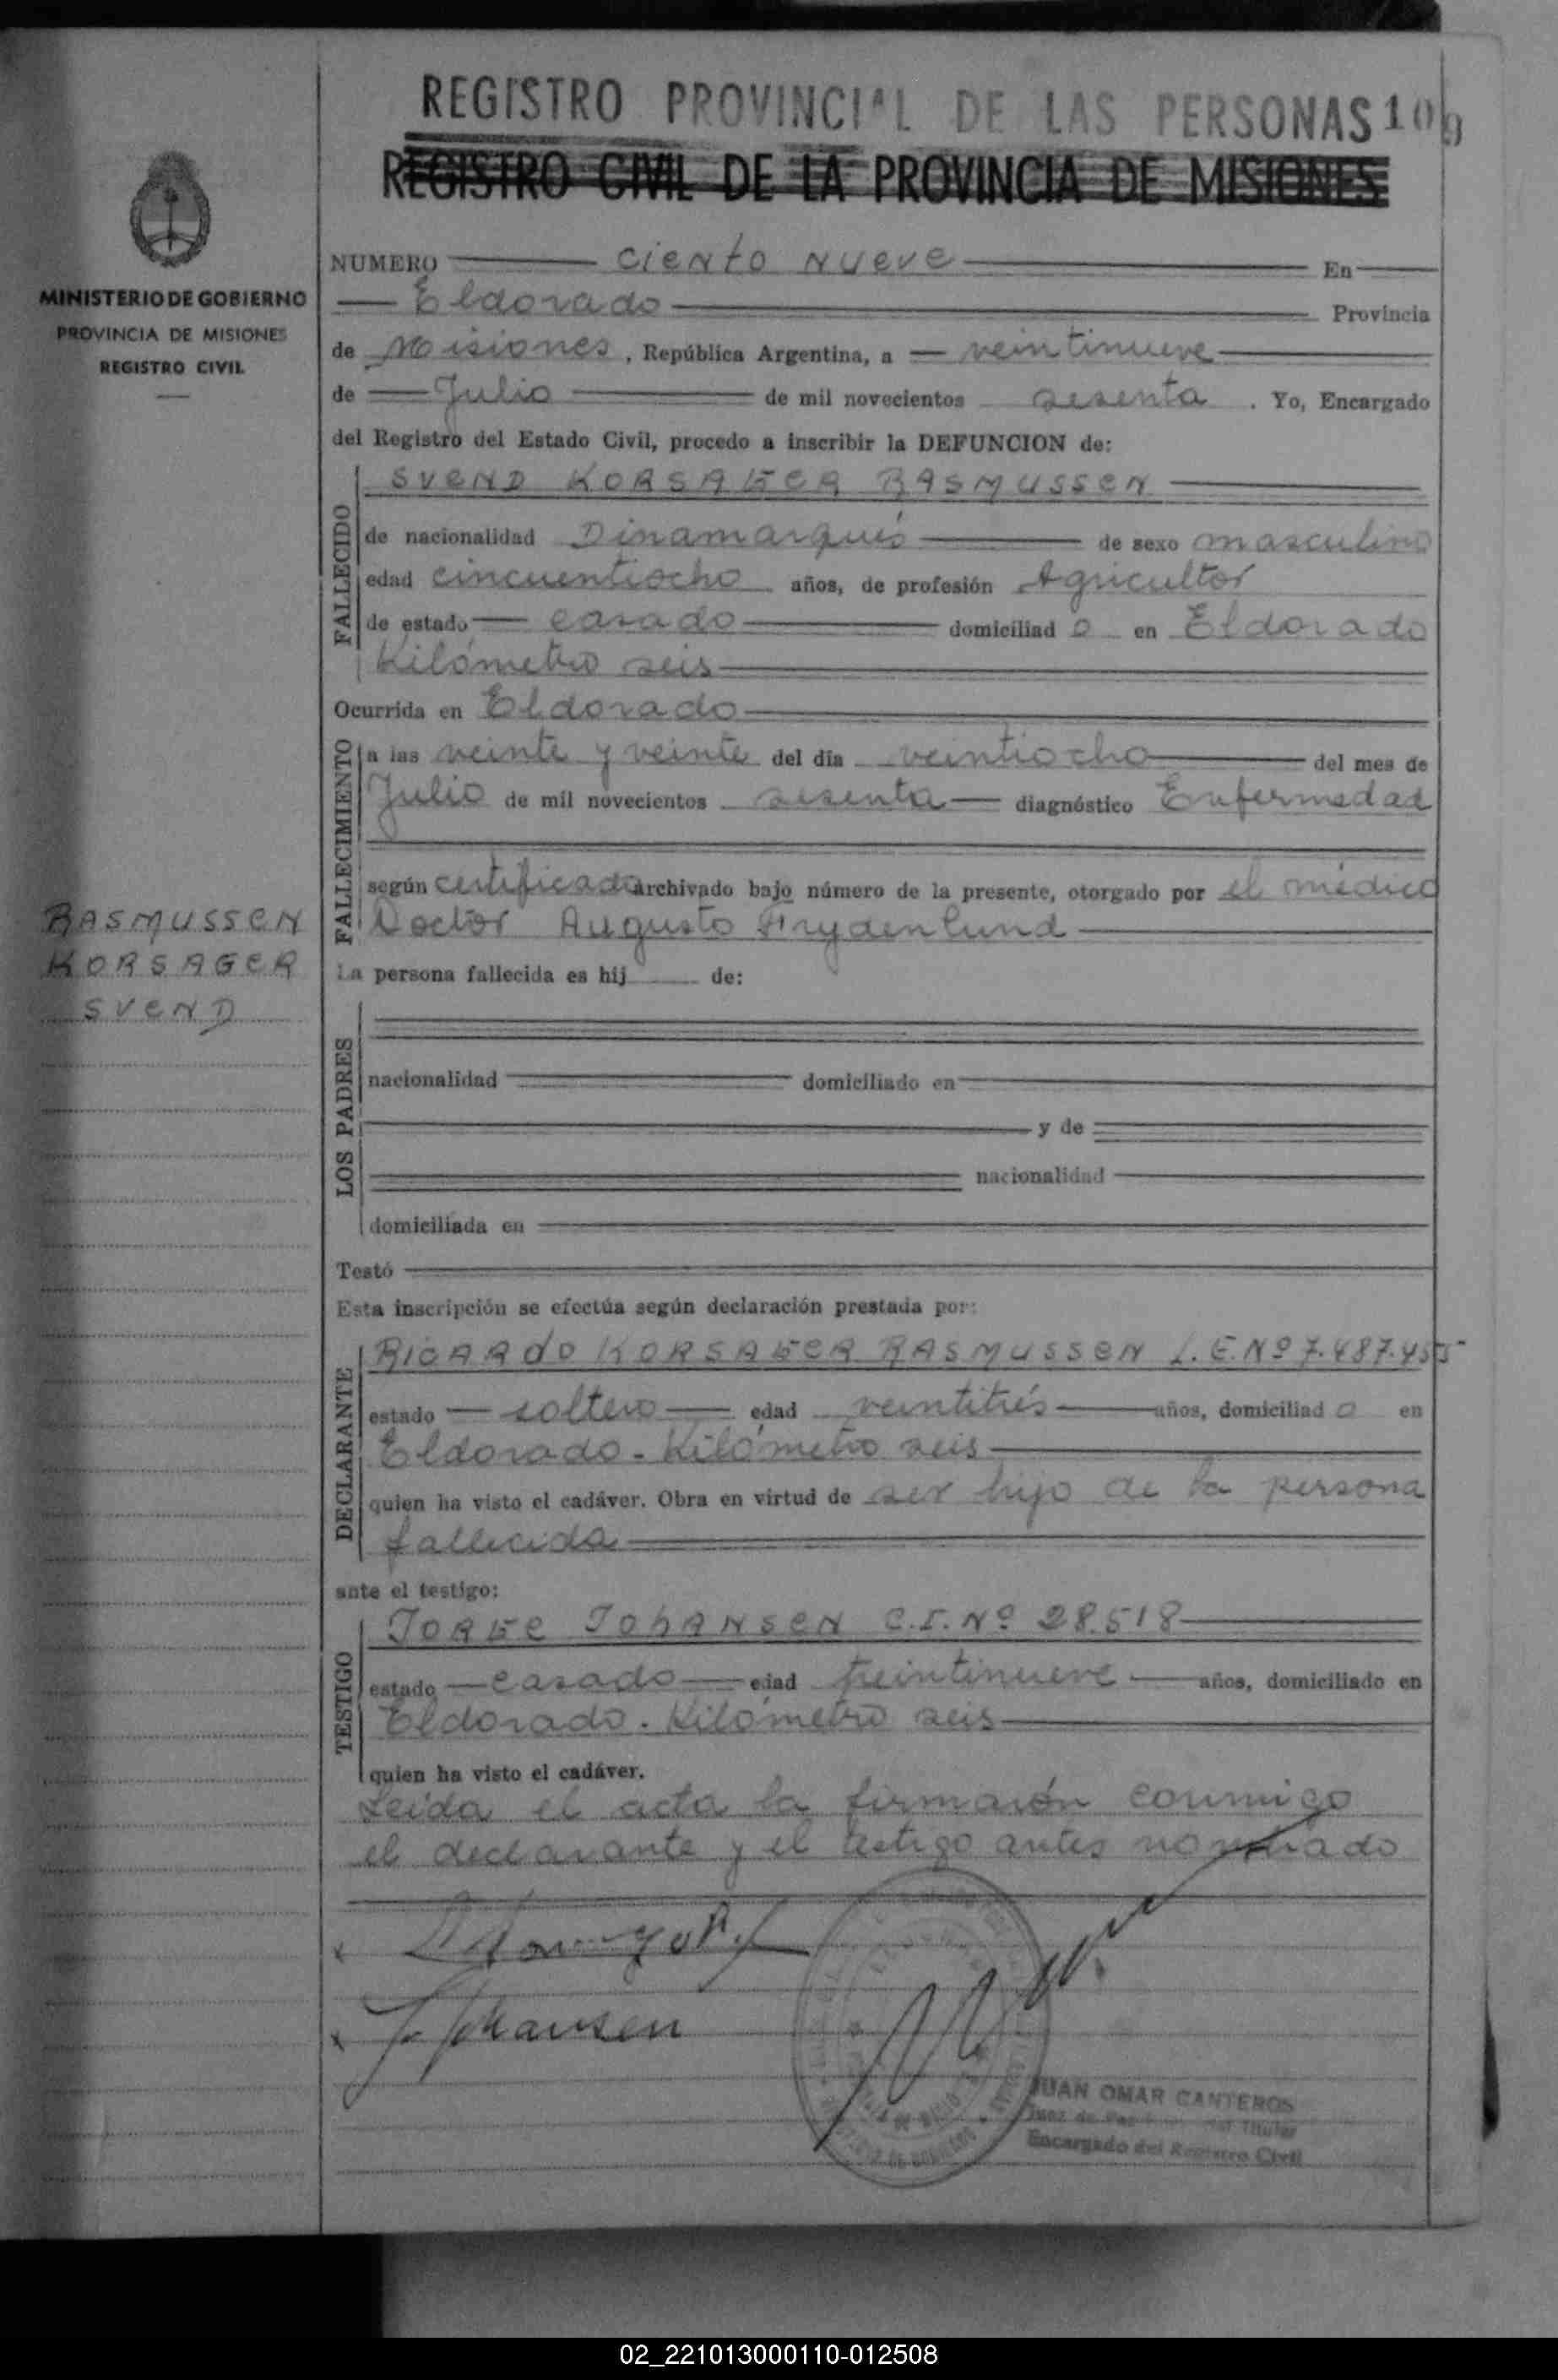 REGISTRO PROVINCIAL DE LAS PERSONAS 109
REGISTRO CIVIL DE LA PROVINCIA DE MISIONES
MINISTERIO DE GOBIERNO
PROVINCIA DE MISIONES
REGISTRO CIVIL
NUMERO ciento nueve En
Eldorado Provincia
de Misiones, República Argentina, a veintinueve
de Julio de mil novecientos sesenta. Yo, Encargado
del Registro del Estado Civil, procedo a inscribir la DEFUNCION de:
FALLECIDO
SVEND KORSAGER RASMUSSEN
de nacionalidad Dinamarqués de sexo masculino
edad cincuentiocho años, de profesión Agricultor
de estado casado domiciliad o en Eldorado
Kilómetro seis
Ocurrida en Eldorado
FALLECIMIENTO
a las veinte y veinte del día veintiocho del mes de
Julio de mil novecientos sesenta diagnóstico Enfermedad
según certificado archivado bajo número de la presente, otorgado por el médico
Doctor Augusto Frydenlund
RASMUSSEN
KORSAGER
SVEND
La persona fallecida es hij de:
LOS PADRES
nacionalidad domiciliado en
y de
nacionalidad
domiciliada en
Testó
Esta inscripción se efectúa según declaración prestada por:
DECLARANTE
RICARDO KORSAGER RASMUSSEN L.E.Nº 7.487.455
estado soltero edad veintitrés años, domiciliad o en
Eldorado - Kilómetro seis
quien ha visto el cadáver. Obra en virtud de ser hijo de la persona
fallecida
ante el testigo:
TESTIGO
JORGE JOHANSEN C.I. Nº 28.518
estado casado edad treintinueve años, domiciliado en
Eldorado. Kilómetro seis
quien ha visto el cadáver.
Leída el acta la firmarón conmigo
el declarante y el testigo antes nombrado
J. Johansen
JUAN OMAR CANTEROS
Juez de Paz Titular
Encargado del Registro Civil
02_221013000110-012508